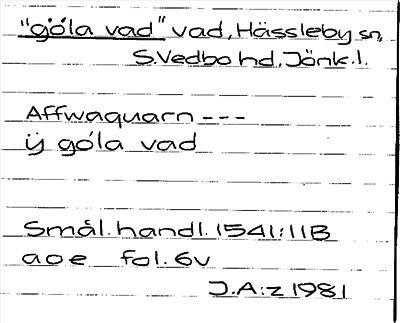 "góla vad" vad, Hässleby sn,
S.Vedbo hd, Jönk.l.
Affwaquarn ---
ÿ góla vad
Smål.handl. 1541:11B
aoe fol. 6v
J.A:z 1981